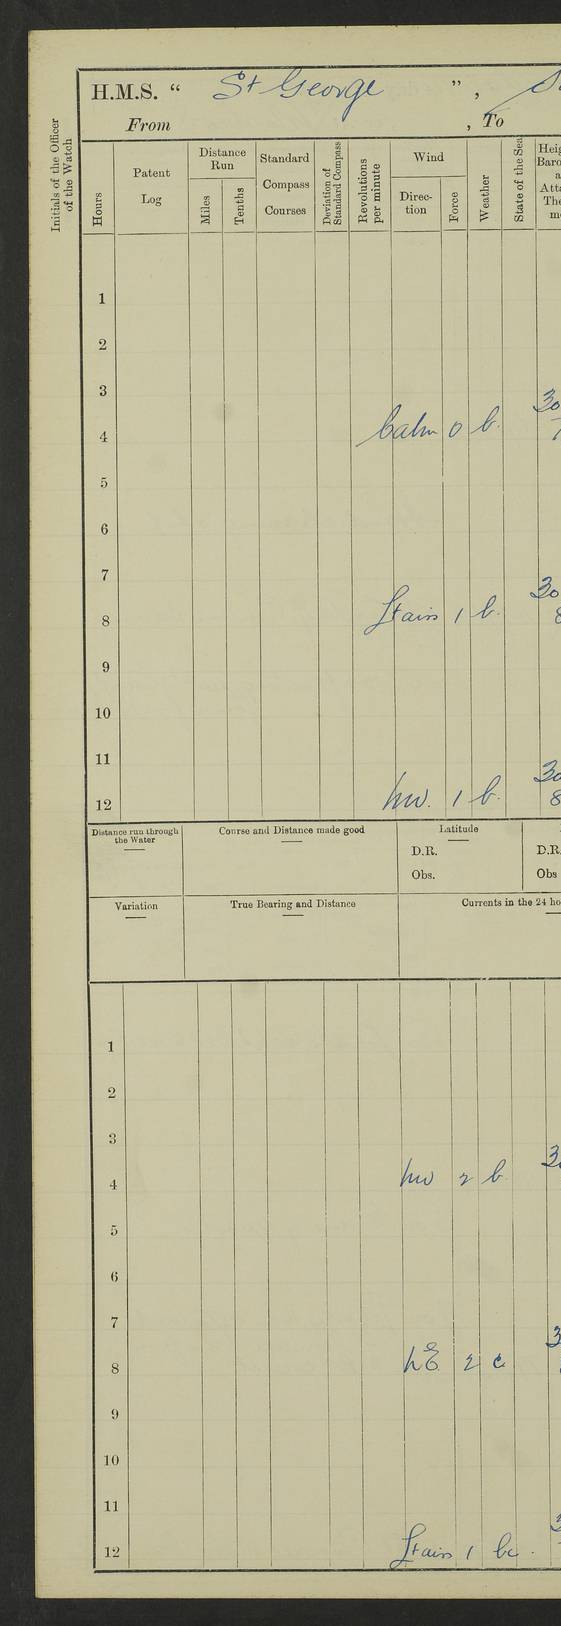 H.M.S. “ St George ” ,
From , To
Initials of the Officer of the Watch
Hours
Patent Log
Distance Run
Miles
Tenths
Standard Compass Courses
Deviation of Standard Compass
Revolutions per minute
Wind
Direction
Force
Weather
State of the Sea
1
2
3 30
4 Calm 0 b.
5
6
7 30
8 Lt airs 1 b. 8
9
10
11 30
12 NW. 1 b. 8
Distance run through the Water
Course and Distance made good
Latitude
D.R. D.R.
Obs. Obs
Variation
True Bearing and Distance
Currents in the 24 ho
1
2
3 3
4 NW 2 b.
5
6
7 3
8 NE 2 c
9
10
11 3
12 Lt airs 1 bc.